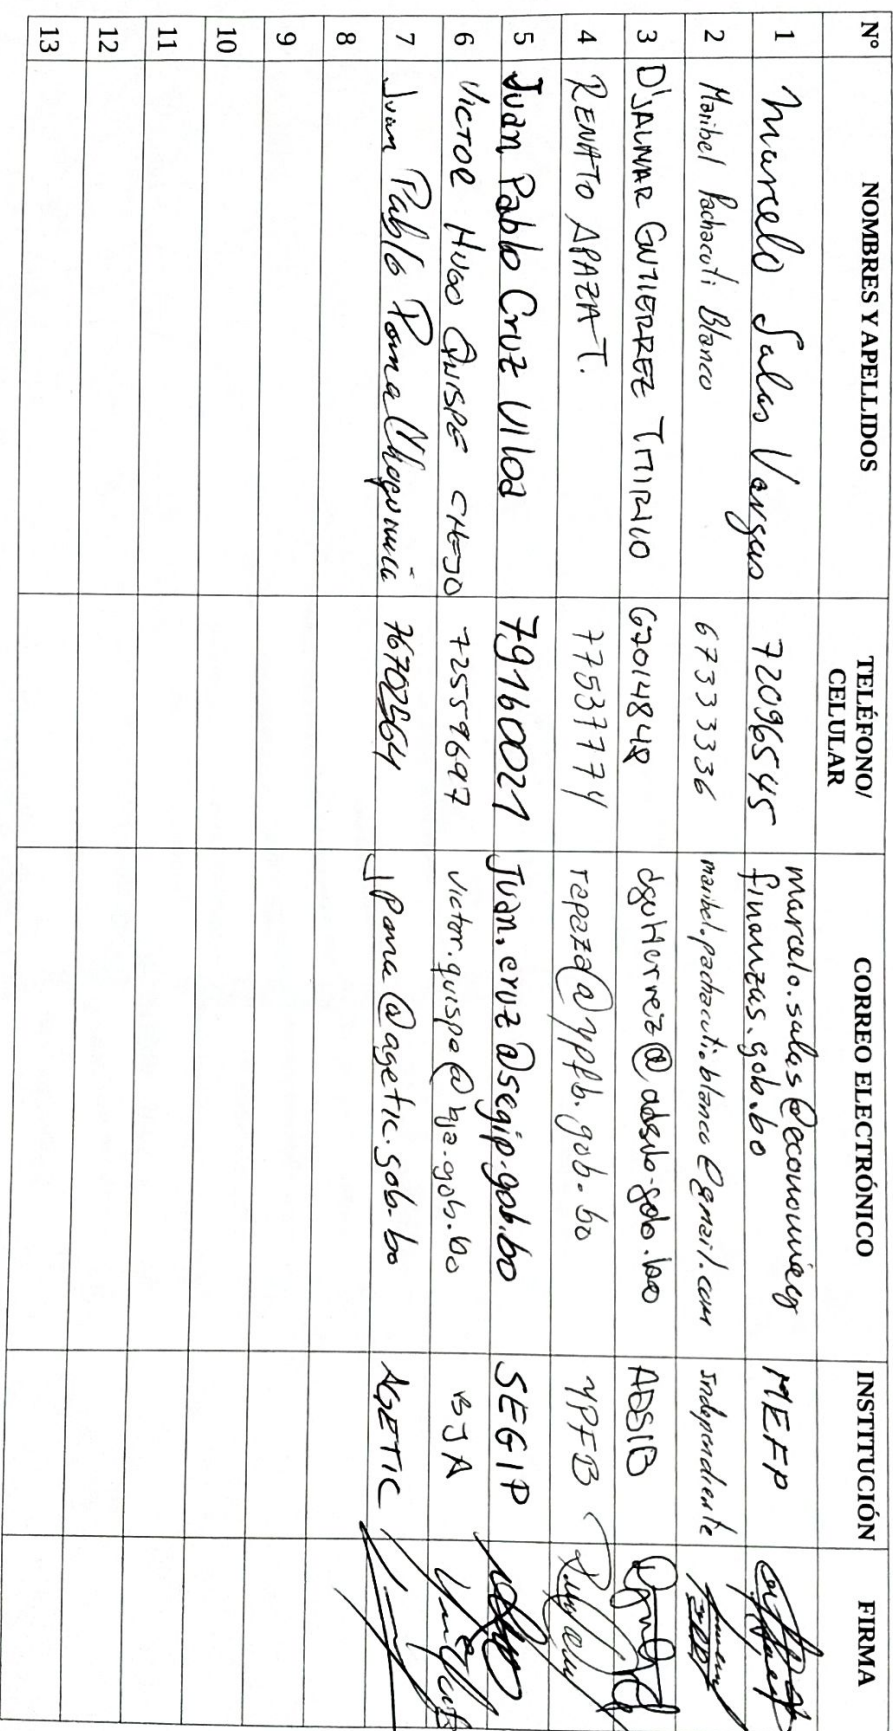 N° NOMBRES Y APELLIDOS TELÉFONO/ CELULAR CORREO ELECTRÓNICO INSTITUCIÓN FIRMA
1 Marcelo Salas Vargas 72096545 marcelo.salas@economiay
finanzas.gob.bo MEFP
2 Maribel Pachacuti Blanco 67333336 maribel.pachacuti.blanco@gmail.com Independiente
3 D'JALMAR GUTIERREZ TITIRICO 67014848 dgutierrez@adsib.gob.bo ADSIB
4 RENATO APAZA T. 77537774 rapaza@ypfb.gob.bo YPFB
5 Juan Pablo Cruz Viloa 79160021 Juan.cruz@segip.gob.bo SEGIP
6 VICTOR HUGO QUISPE CHEJO 72559697 victor.quispe@bja.gob.bo BJA
7 Juan Pablo Poma 76702564 jpoma@agetic.gob.bo AGETIC
8
9
10
11
12
13